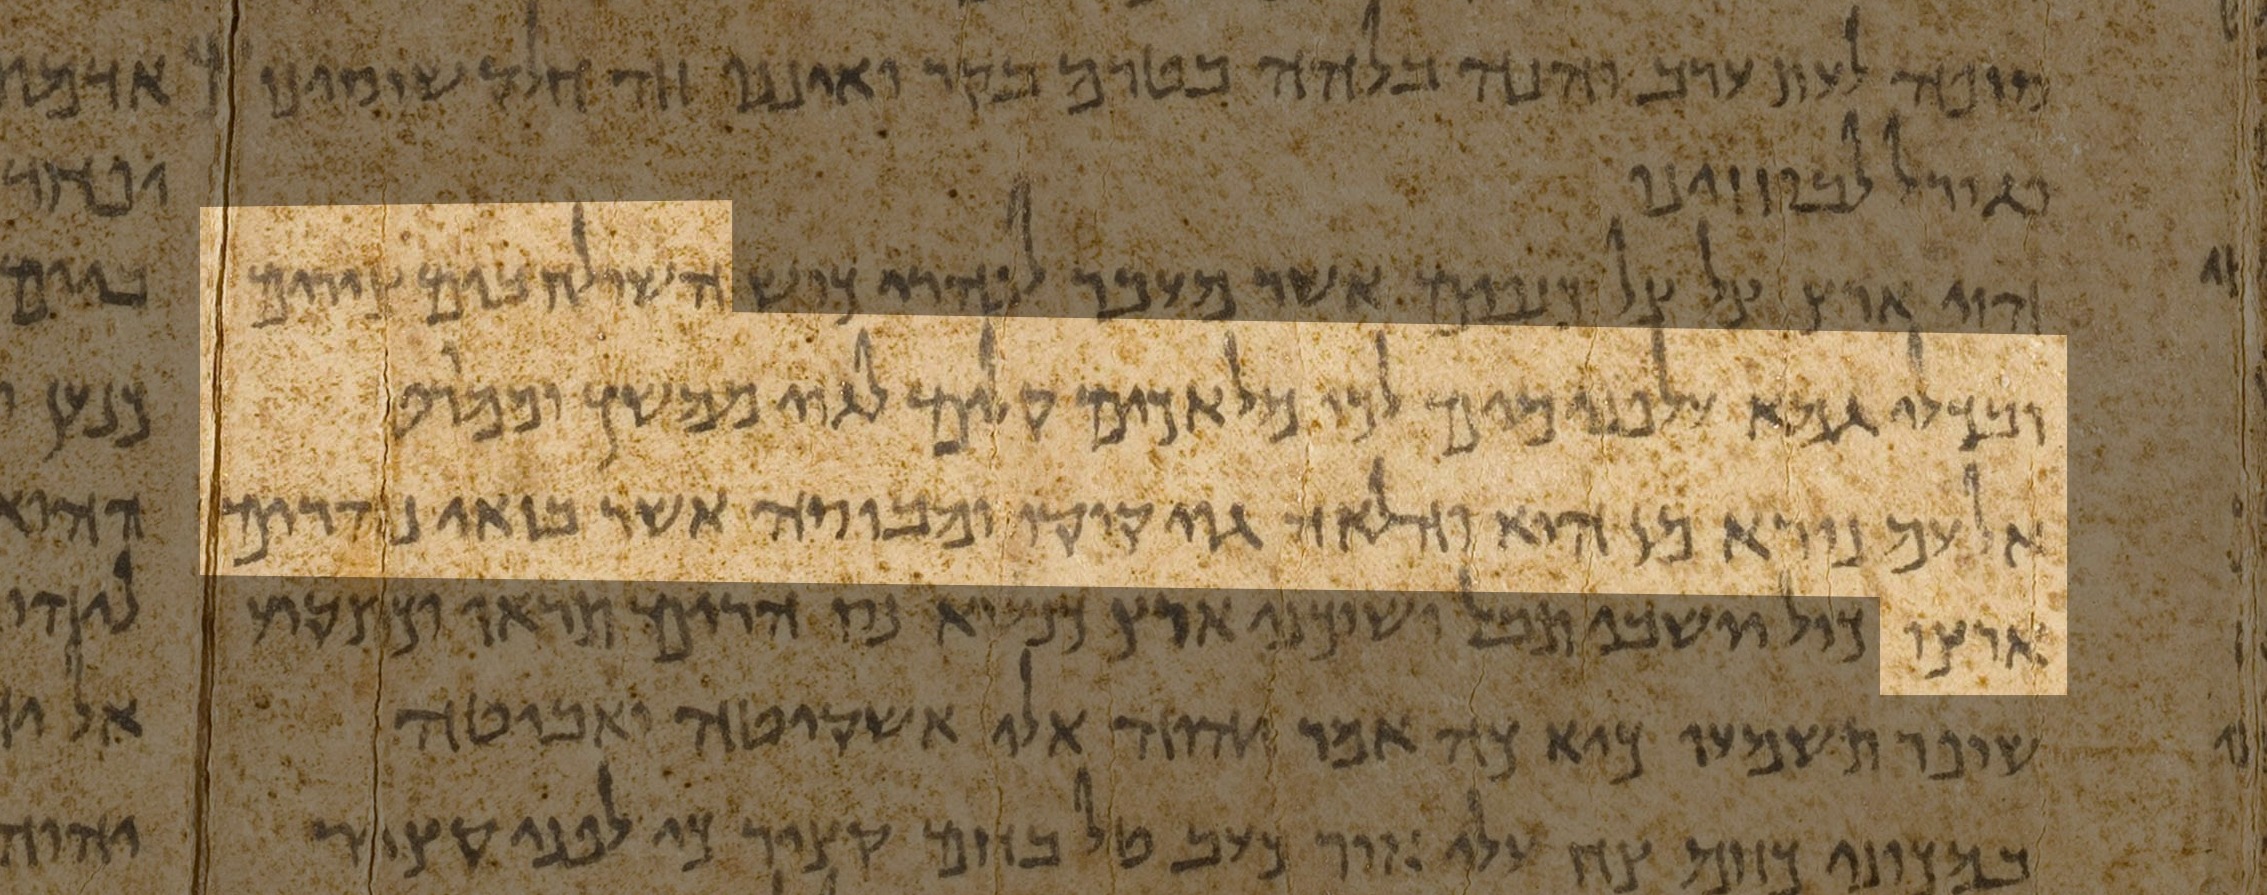 סופה לעת ערב והנה בלהה בטרם בקר ואיננו זה חלק שוסינו
וגורל לבוזזינו
הוי ארץ צל צל כנפים אשר מעבר לנהרי כוש השולח בים צירים
ובכלי גמא על פני מים לכו מלאכים קלים לגוי ממשך וממורט
אל עם נורא מן הוא והלאה גוי קוקו ומבוסה אשר בזאו נהרים
ארצו כול יושבי תבל ושוכני ארץ כנשוא נס הרים תראו וכתקוע
שופר תשמעו כיא כה אמר יהוה אלי אשקוטה ואביטה
במכוני כחום צח עלי אור כעב טל בחום קציר כי לפני קציר